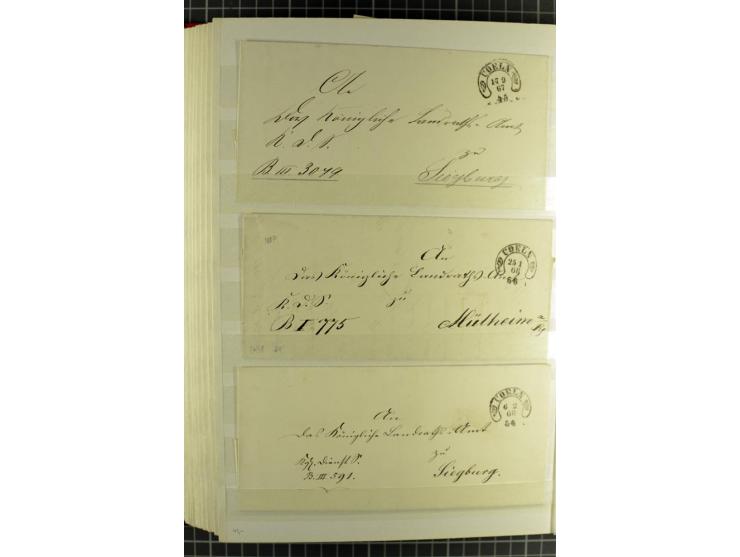 COELN
17 9
67
An
Das Königliche Landraths-Amt
K. D. S.
zu
B III 3079
Siegburg
COELN
25 1
68
An
Das Königliche Landraths-Amt
K. D. S. zu
B I 775 Mülheim a/Rh
COELN
6 2
68
An
das Königliche Landraths-Amt
Kgl. Dienst S. zu
B. III. 591. Siegburg.